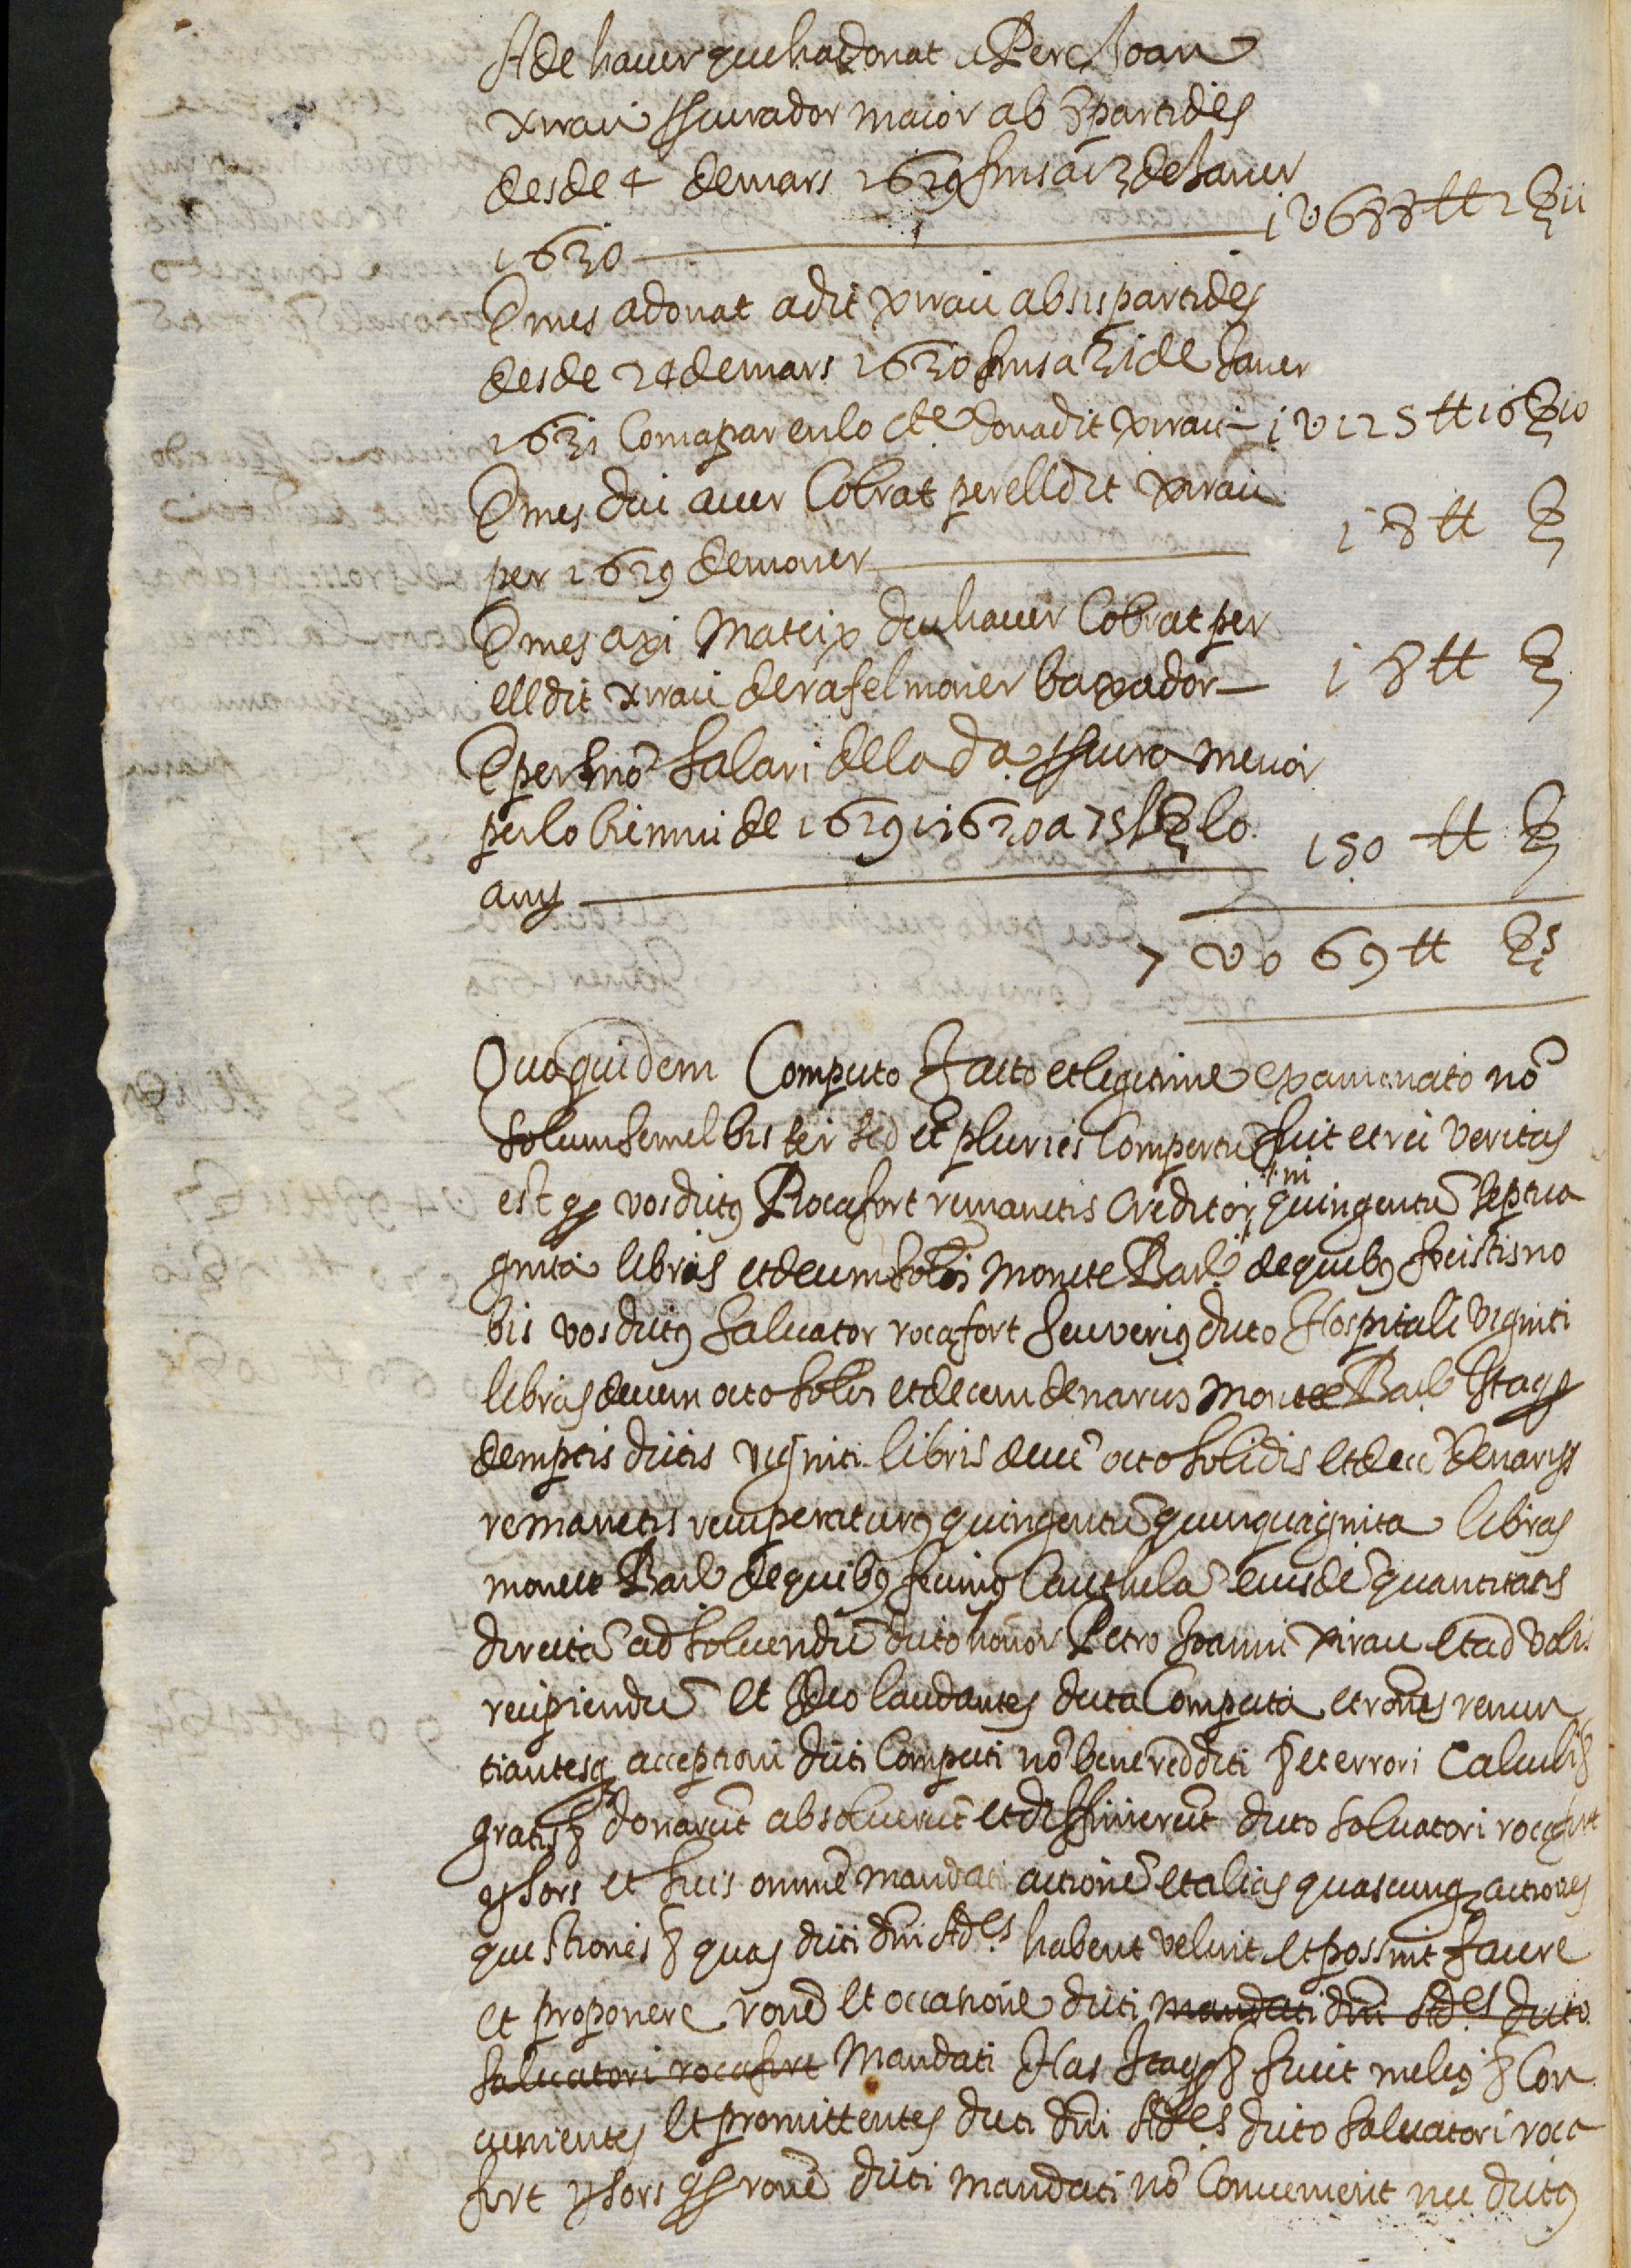 A de haver que ha donat a Pere Joan
xirau scurador maior ab 8 partides
desde 4 de mars 1629 fins a 13 de Janer
1630 — i v 688 tt 2 ß ii
E mes a donat a dit xirau ab sis partides
desde 24 de mars 1630 fins a 31 de Janer
1631 Com apar en lo cte dona dit xirau — i v 125 tt 16 ß 10
E mes diu aver Cobrat per ell dit xirau
per 1629 de moner — i 8 tt ß
E mes axi Mateix diu haver Cobrat per
ell dit xirau de rafel moner baxador — i 8 tt ß
E per son Salari de la da scura menor
per lo bienni de 1629 i 1630 a 75 l ß lo
any — 150 tt ß
7 v 0 69 tt ß 5
Quo quidem Computo facto et legitime examinato nō
solum semel bis ter sed et pluries Compertū fuit et rei veritas
est q vos dictus Rocafort remanetis Creditor in quingentū septua
ginta libras et decem solidos monete Barl de quibus fecistis no
bis vos dictus Salvator rocafort seu verius dicto Hospitali viginti
libras decem octo solidos et decem denarios monete Barl Itaq
demptis dictis viginti libris decē octo solidis et decē denariis
remanetis recuperaturus quingentū quinquaginta libras
monete Barl de quibus fecimus Cauthelā eiusdē quantitatis
directā ad solvendū dicto honor Petro Joanni Xirau et ad vobis
recipiendū et Ideo laudantes dicta Computa et rōnes renun
tiantesq acceptioni dicti Computi nō bene redditi & et errori Calculi &
gratis & donarūt absoluerūt et diffinierūt dicto Salvatori rocafort
pnt et suis omnē mandati actionē et alias quascunq actiones
questiones & quas dicti dni Ades habent velint et possint facere
et proponere ronē et occatione dicti mandati dni Ades dicto
Salvatori rocafort Mandati Has Itaq & sicut melius & Con
uenientes et promittentes dicti dni Ades dicto Salvatori roca
fort pnt q ronē dicti Mandati nō Convenerit nec dictus